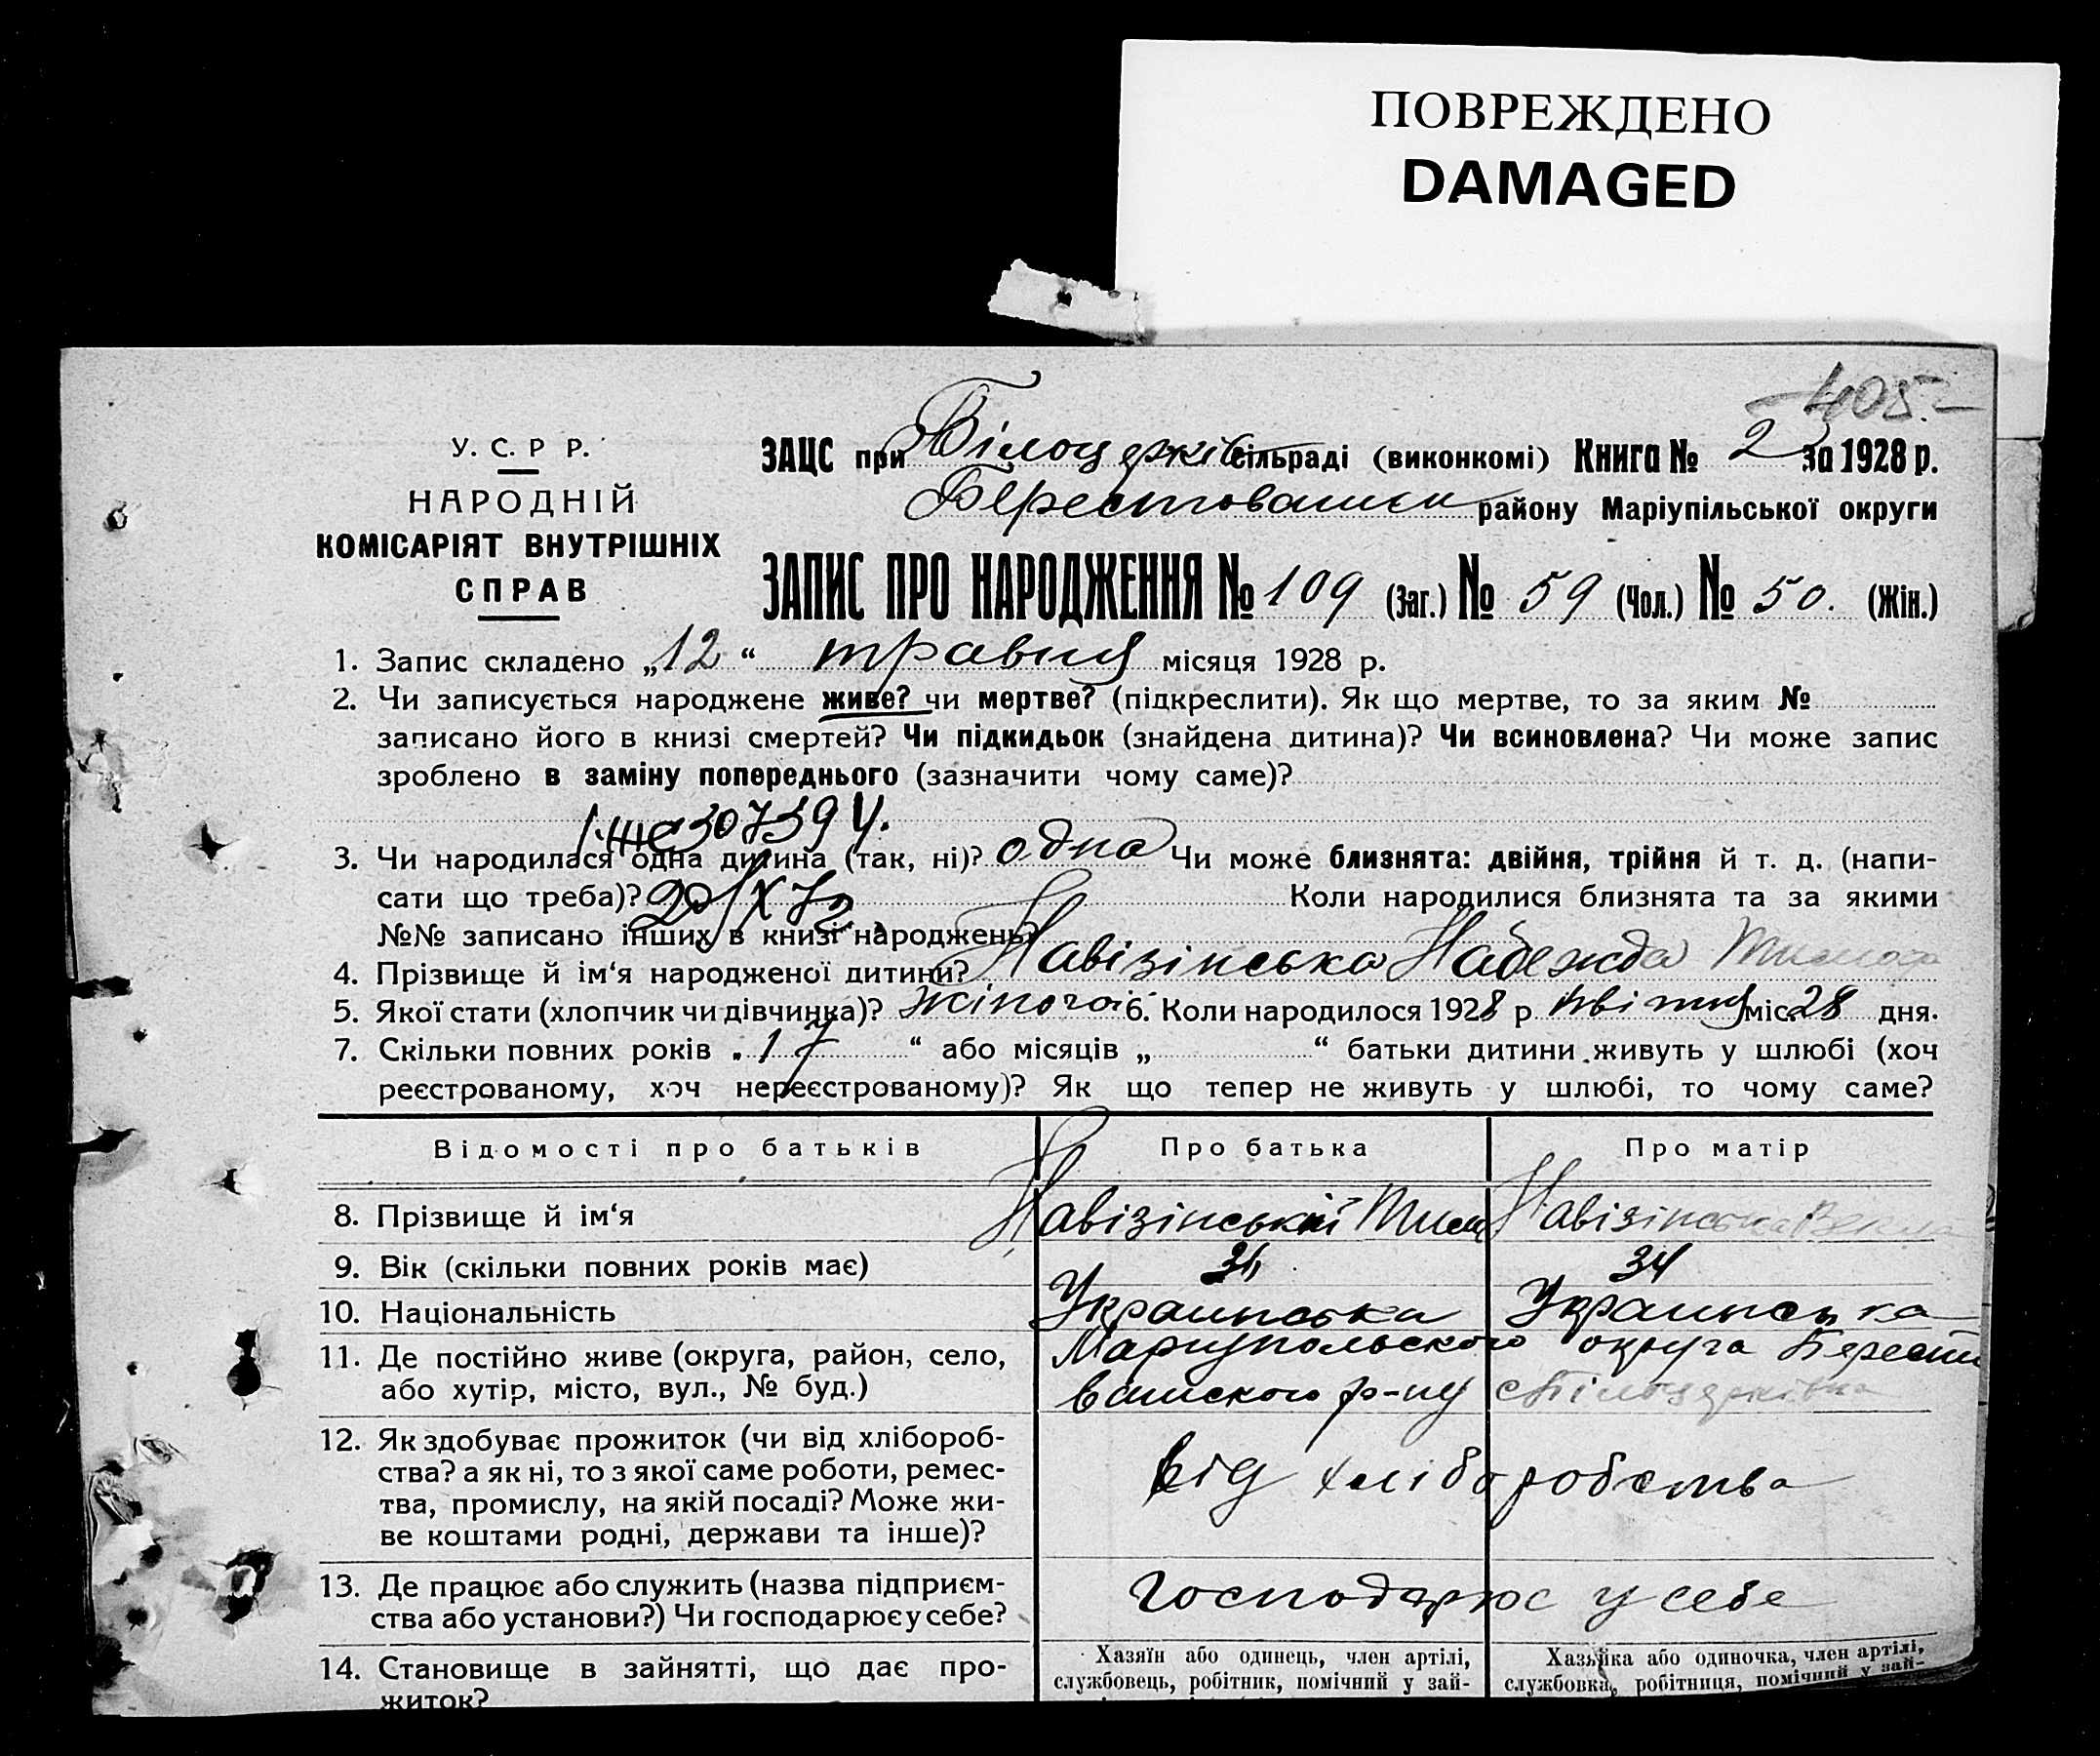 ПОВРЕЖДЕНО
DAMAGED
405
У. С. Р Р.
НАРОДНІЙ
КОМІСАРІЯТ ВНУТРІШНІХ
СПРАВ
ЗАЦС при Білоцерків сільраді (виконкомі) Книга № 2 за 1928 р.
району Маріупільської округи
ЗАПИС ПРО НАРОДЖЕННЯ № 109 (Заг.) № 59 (Чол.) № 50. (Жін.)
1. Запис складено „12“ травня місяця 1928 р.
2. Чи записується народжене живе? чи мертве? (підкреслити). Як що мертве, то за яким №
записано його в книзі смертей? Чи підкидьок (знайдена дитина)? Чи всиновлена? Чи може запис
зроблено в заміну попереднього (зазначити чому саме)?
307394.
3. Чи народилася одна дитина (так, ні)? одна Чи може близнята: двійня, трійня й т. д. (напи-
сати що треба)? 20/X 72 Коли народилися близнята та за якими
№№ записано інших в книзі народжень?
4. Прізвище й ім‘я народженої дитини? Навізінська Надежда
5. Якої стати (хлопчик чи дівчинка)? жіночої 6. Коли народилося 1928 р. квітня міс. 28 дня.
7. Скільки повних років „17“ або місяців „ “ батьки дитини живуть у шлюбі (хоч
реєстрованому, хоч нереєстрованому)? Як що тепер не живуть у шлюбі, то чому саме?
Відомості про батьків Про батька Про матір
8. Прізвище й ім‘я Навізінський Навізінська
9. Вік (скільки повних років має) 34
10. Національність Украинська Украинська
11. Де постійно живе (округа, район, село, Мариупольского округа
або хутір, місто, вул., № буд.) р-ну
12. Як здобуває прожиток (чи від хлібороб-
ства? а як ні, то з якої саме роботи, ремес- від хліборобства
тва, промислу, на якій посаді? Може жи-
ве коштами родні, держави та інше)?
13. Де працює або служить (назва підприєм- господарює у себе
ства або установи?) Чи господарює у себе?
14. Становище в зайнятті, що дає про- Хазяїн або одинець, член артілі, Хазяйка або одиночка, член артілі,
житок? службовець, робітник, помічний у зай- службовка, робітниця, помічний у зай-